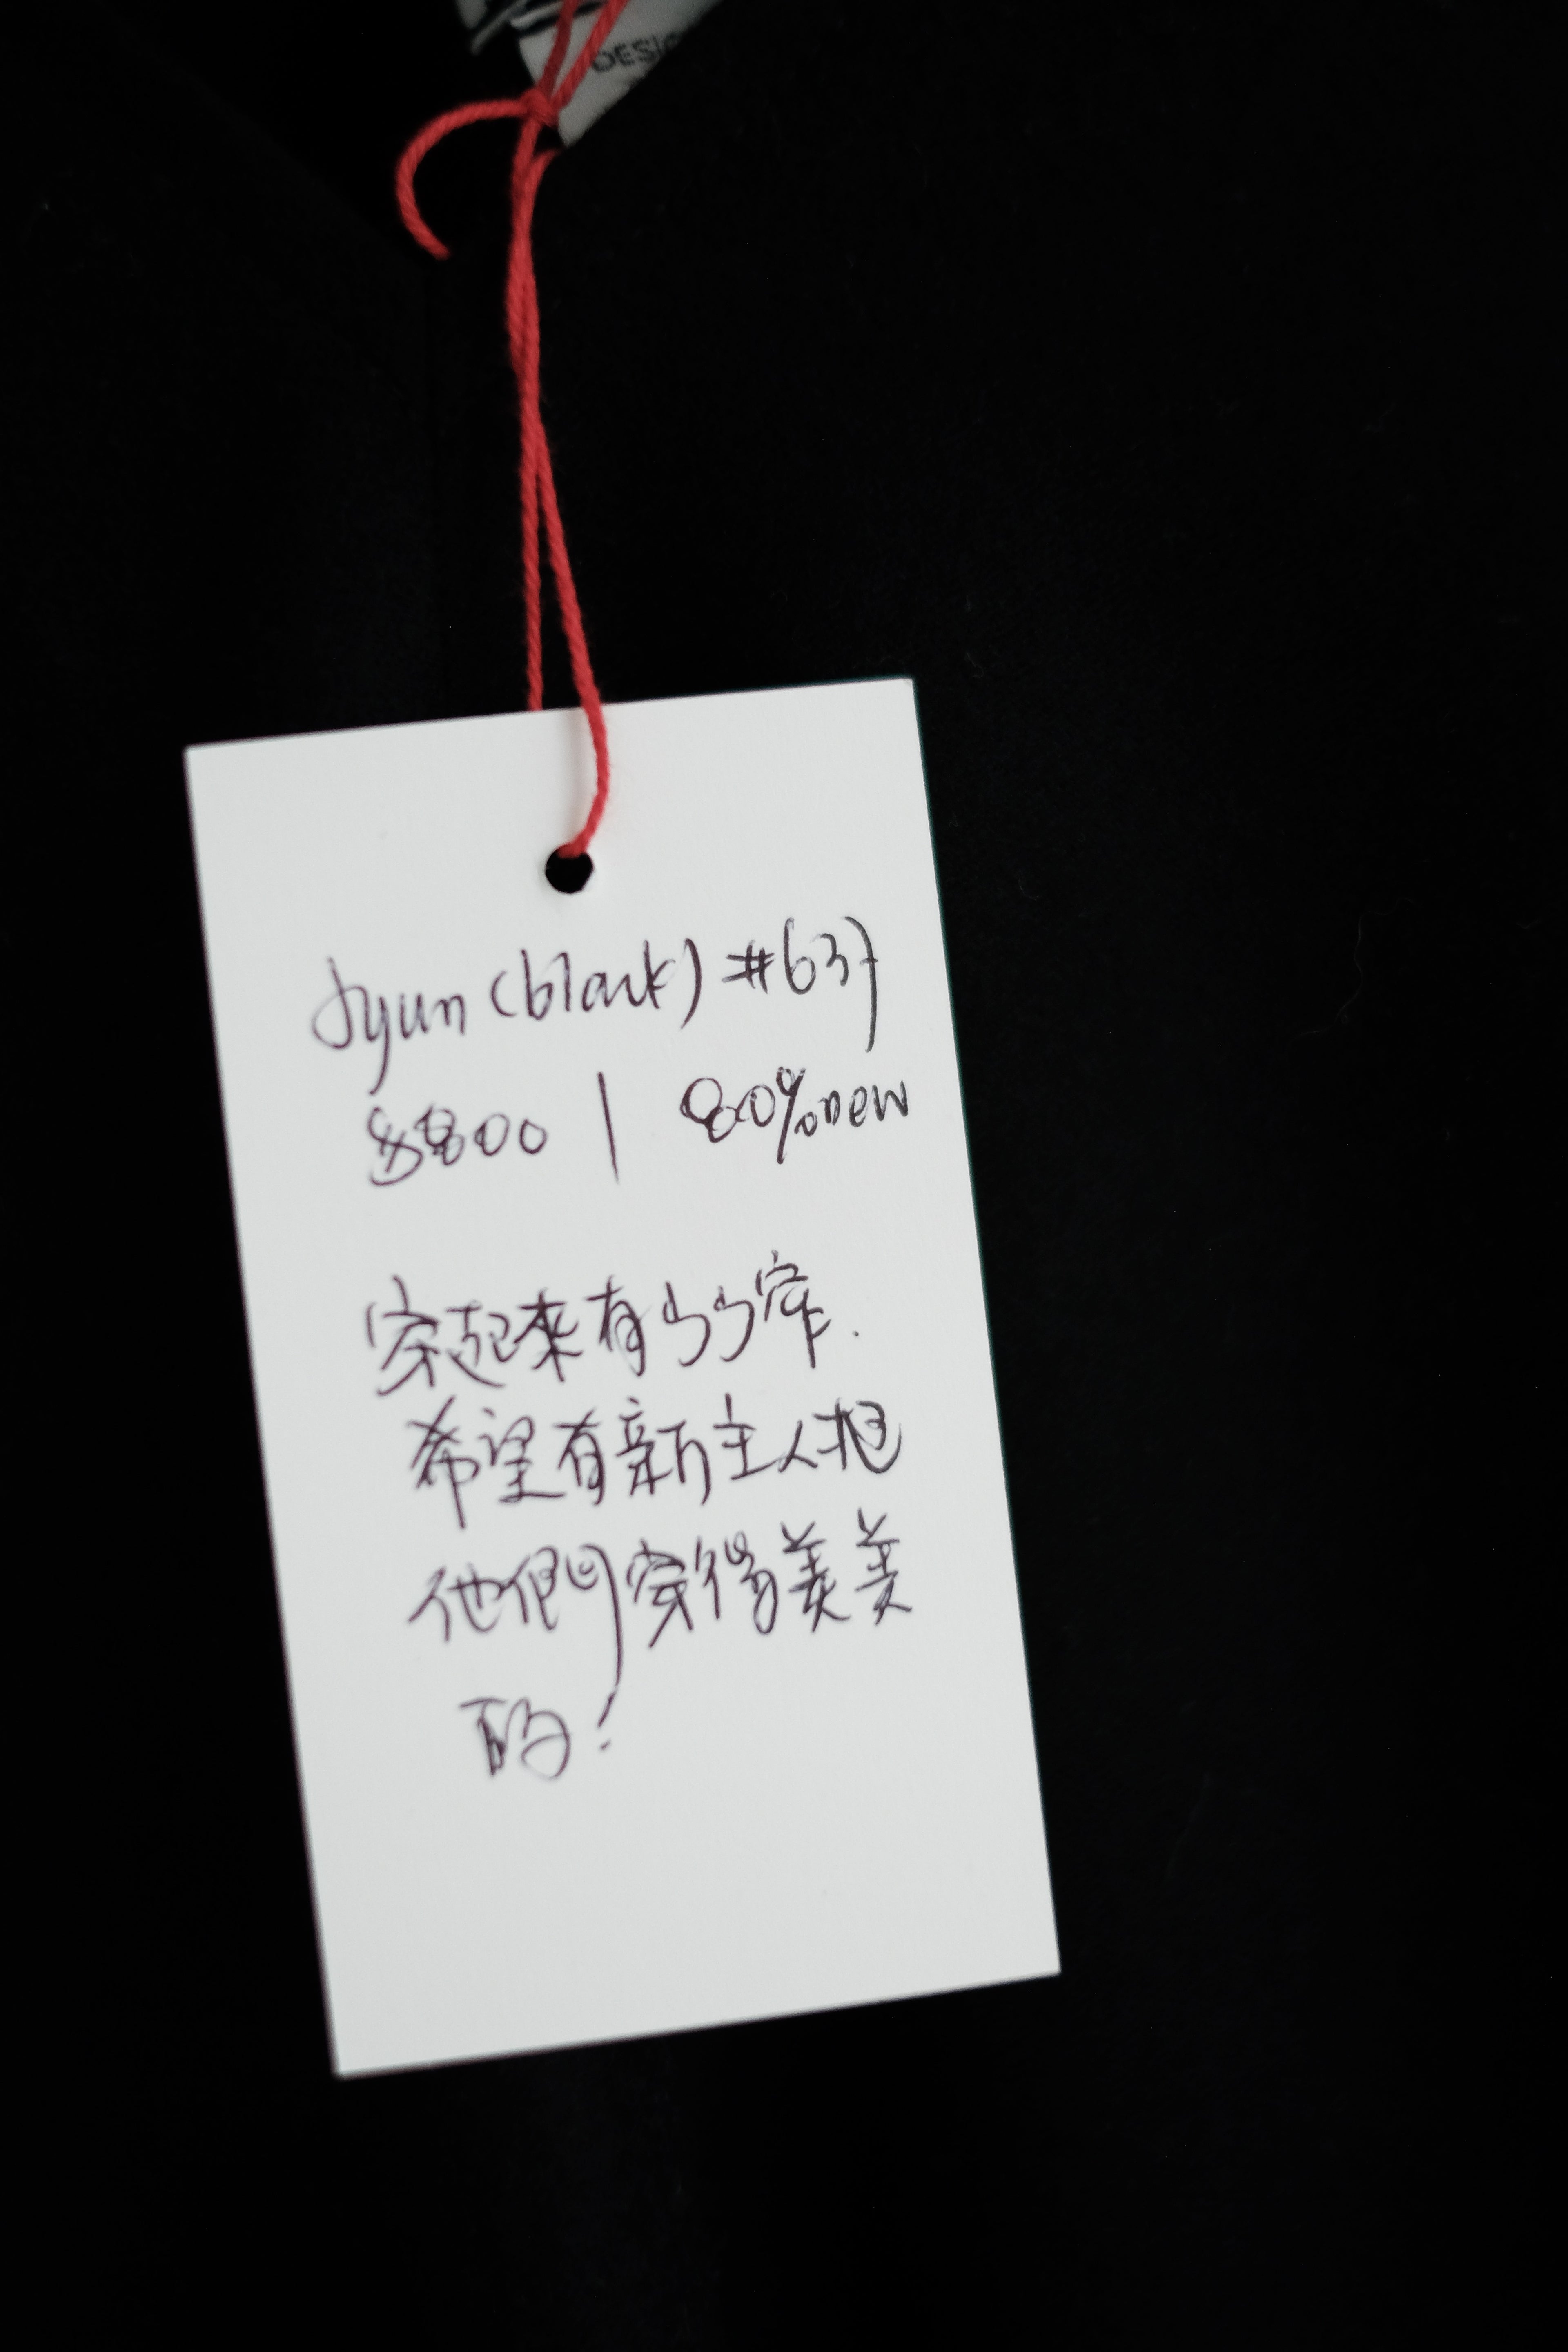 DESIG
Jyun (black) #637
8800 | 80% new
穿起來有ㄅㄅ窄.
希望有新主人把
他們穿得美美
的!